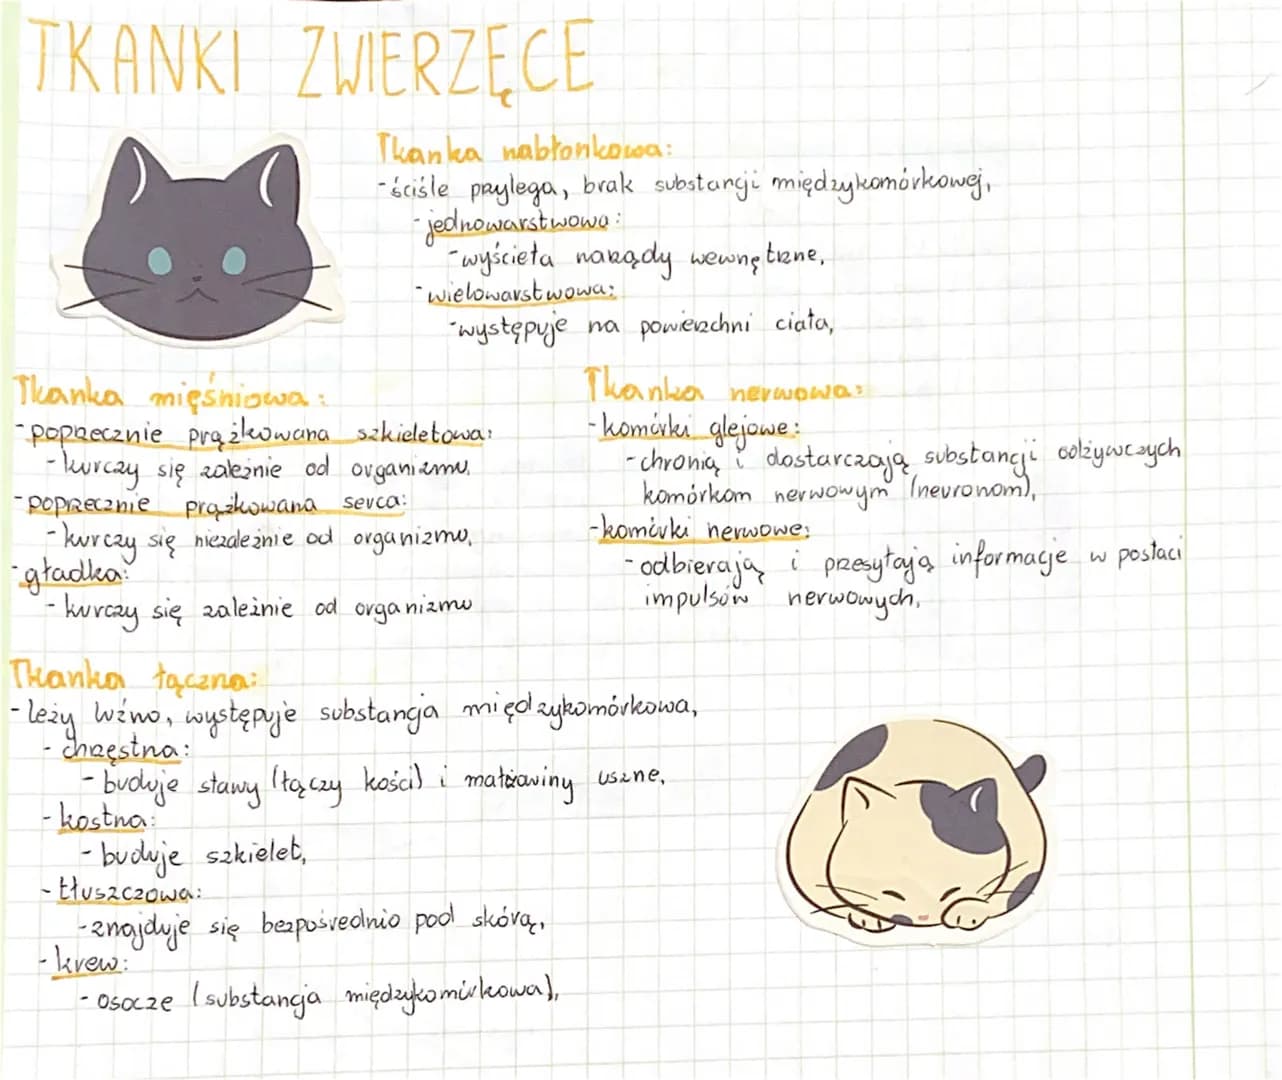 TKANKI ZWIERZĘCE
Tkanka nabłonkowa:
- ściśle przylega, brak substancji międzykomórkowej,
- jednowarstwowa:
- wyścieła narządy wewnętrzne,
- wielowarstwowa:
- występuje na powierzchni ciała,
Tkanka mięśniowa:
- poprzecznie prążkowana szkieletowa:
- kurczy się zależnie od organizmu,
- poprzecznie prążkowana serca:
- kurczy się niezależnie od organizmu,
- gładka:
- kurczy się zależnie od organizmu
Tkanka nerwowa:
- komórki glejowe:
- chronią i dostarczają substancji odżywczych
komórkom nerwowym (neuronom),
- komórki nerwowe:
- odbierają i przesyłają informacje w postaci
impulsów nerwowych,
Tkanka łączna:
- leży luźno, występuje substancja międzykomórkowa,
- chrzęstna:
- buduje stawy (łączy kości) i małżowiny uszne,
- kostna:
- buduje szkielet,
- tłuszczowa:
- znajduje się bezpośrednio pod skórą,
- krew:
- osocze (substancja międzykomórkowa),